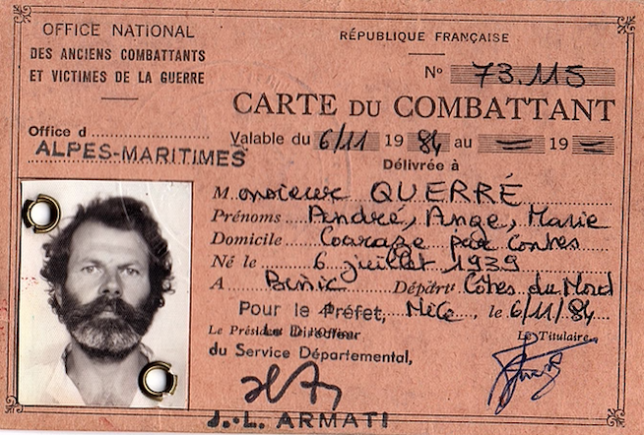 OFFICE NATIONAL
DES ANCIENS COMBATTANTS
ET VICTIMES DE LA GUERRE
RÉPUBLIQUE FRANÇAISE
No 73.115
CARTE DU COMBATTANT
Office d
ALPES-MARITIMES
Valable du 6/11 1984 au = 19 =
Délivrée à
Monsieur QUERRÉ
Prénoms André, Ange, Marie
Domicile Coaraze par Contes
Né le 6 juillet 1939
A Binic Départt Côtes du Nord
Pour le Préfet, Nice, le 6/11/84
Le Président
Le Directeur
Le Titulaire
du Service Départemental,
J.-L. ARMATI